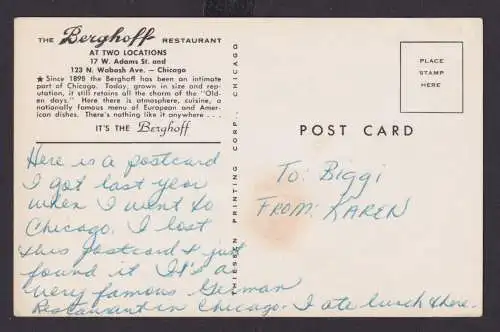 THE Berghoff RESTAURANT
AT TWO LOCATIONS
17 W. Adams St. and
123 N. Wabash Ave. — Chicago
★ Since 1898 the Berghoff has been an intimate
part of Chicago. Today, grown in size and rep-
utation, it still retains all the charm of the "Old-
en days." Here there is atmosphere, cuisine, a
nationally famous menu of European and Amer-
ican dishes. There's nothing like it anywhere . . .
IT'S THE Berghoff
Here is a postcard
I got last year
when I went to
Chicago. I lost
this postcard & just
found it It's a
very famous German
Restaurant in Chicago. I ate lunch there.
THIESSEN PRINTING CORP., CHICAGO
PLACE
STAMP
HERE
POST CARD
To: Biggi
FROM: KAREN